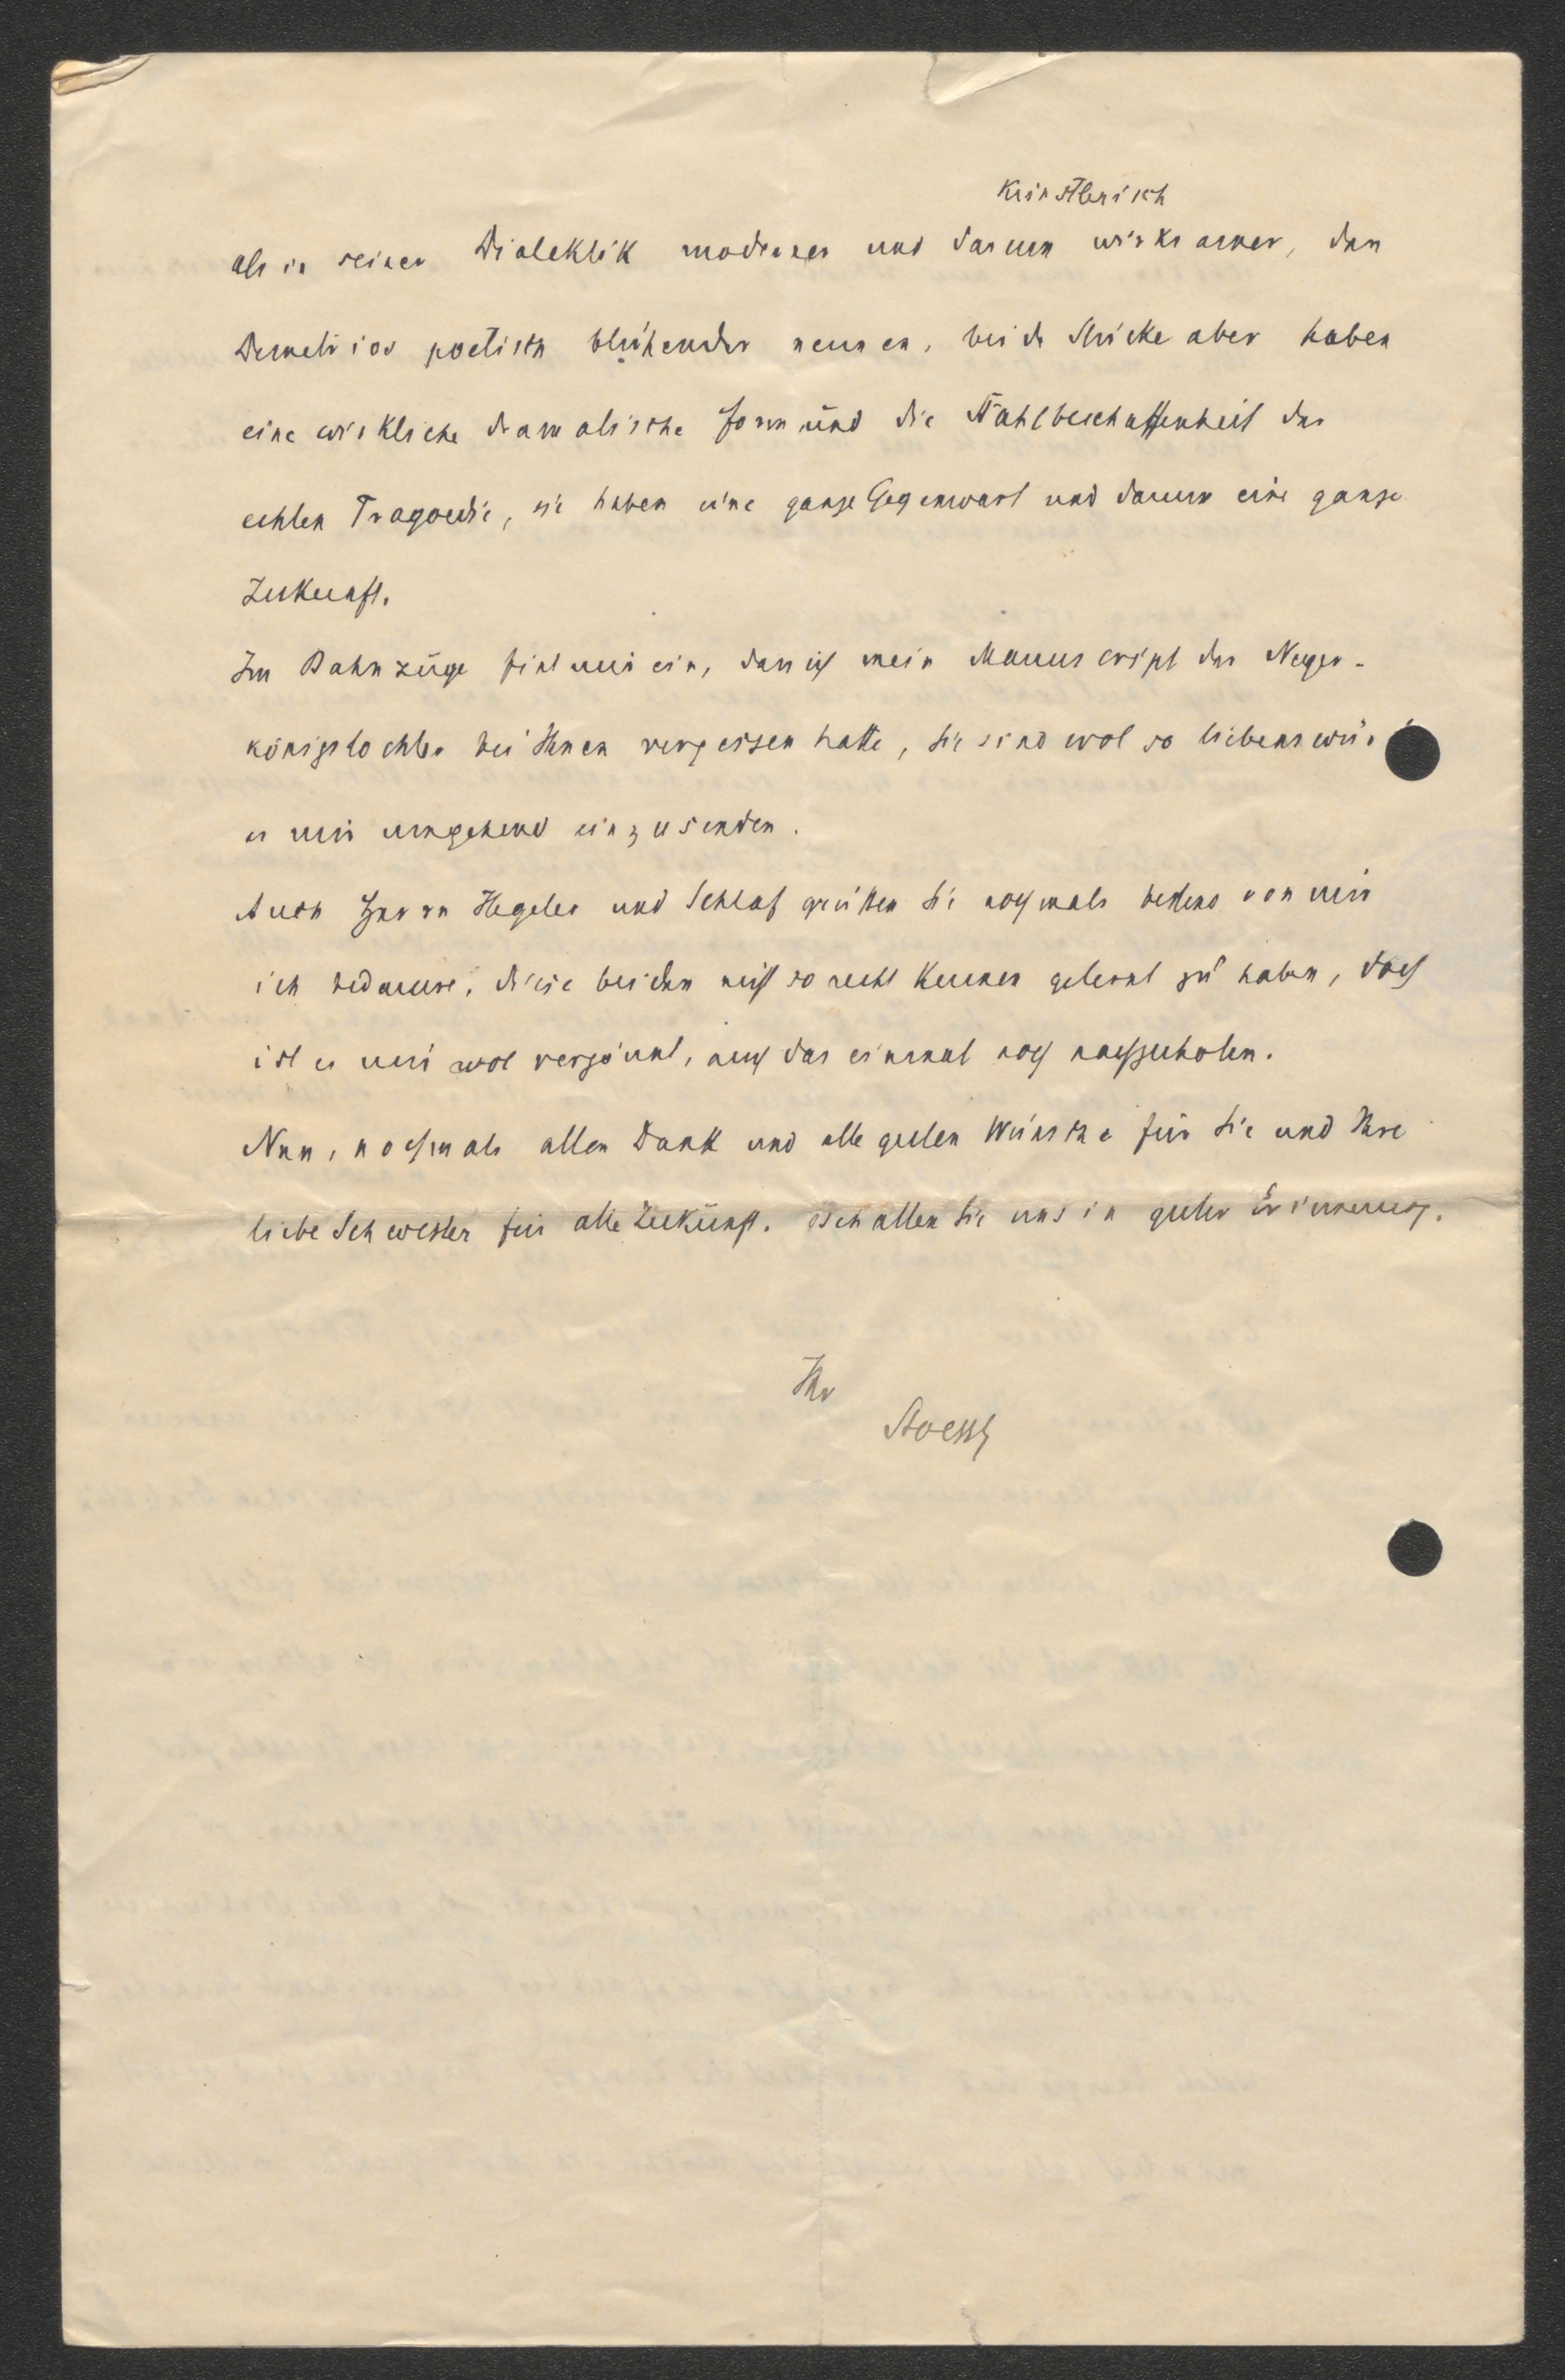 künstlerisch
als in seiner Dialektik moderner und darum wirksamer, den
Demetrios poetisch blühender nennen, beide Stücke aber haben
eine wirkliche dramatische Form und die Stahlbeschaffenheit der
echten Tragoedie, sie haben eine ganze Gegenwart und darum eine ganze
Zukunft.
Im Bahnzuge fiel mir ein, dass ich mein Manuscript der Neger-
königstochter bei Ihnen vergessen hatte, Sie sind wol so liebenswür
es mir umgehend einzusenden.
Auch Herrn Hegeler und Schlaf grüssen Sie nochmals bestens von mir
ich bedaure, diese beiden nicht so recht kennen gelernt zu haben, doch
ist es mir wol vergönnt, auch das einmal noch nachzuholen.
Nun, nochmals allen Dank und alle guten Wünsche für Sie und Ihre
liebe Schwester für alle Zukunft. Behalten Sie uns in guter Erinnerung.
Ihr
Stoessl